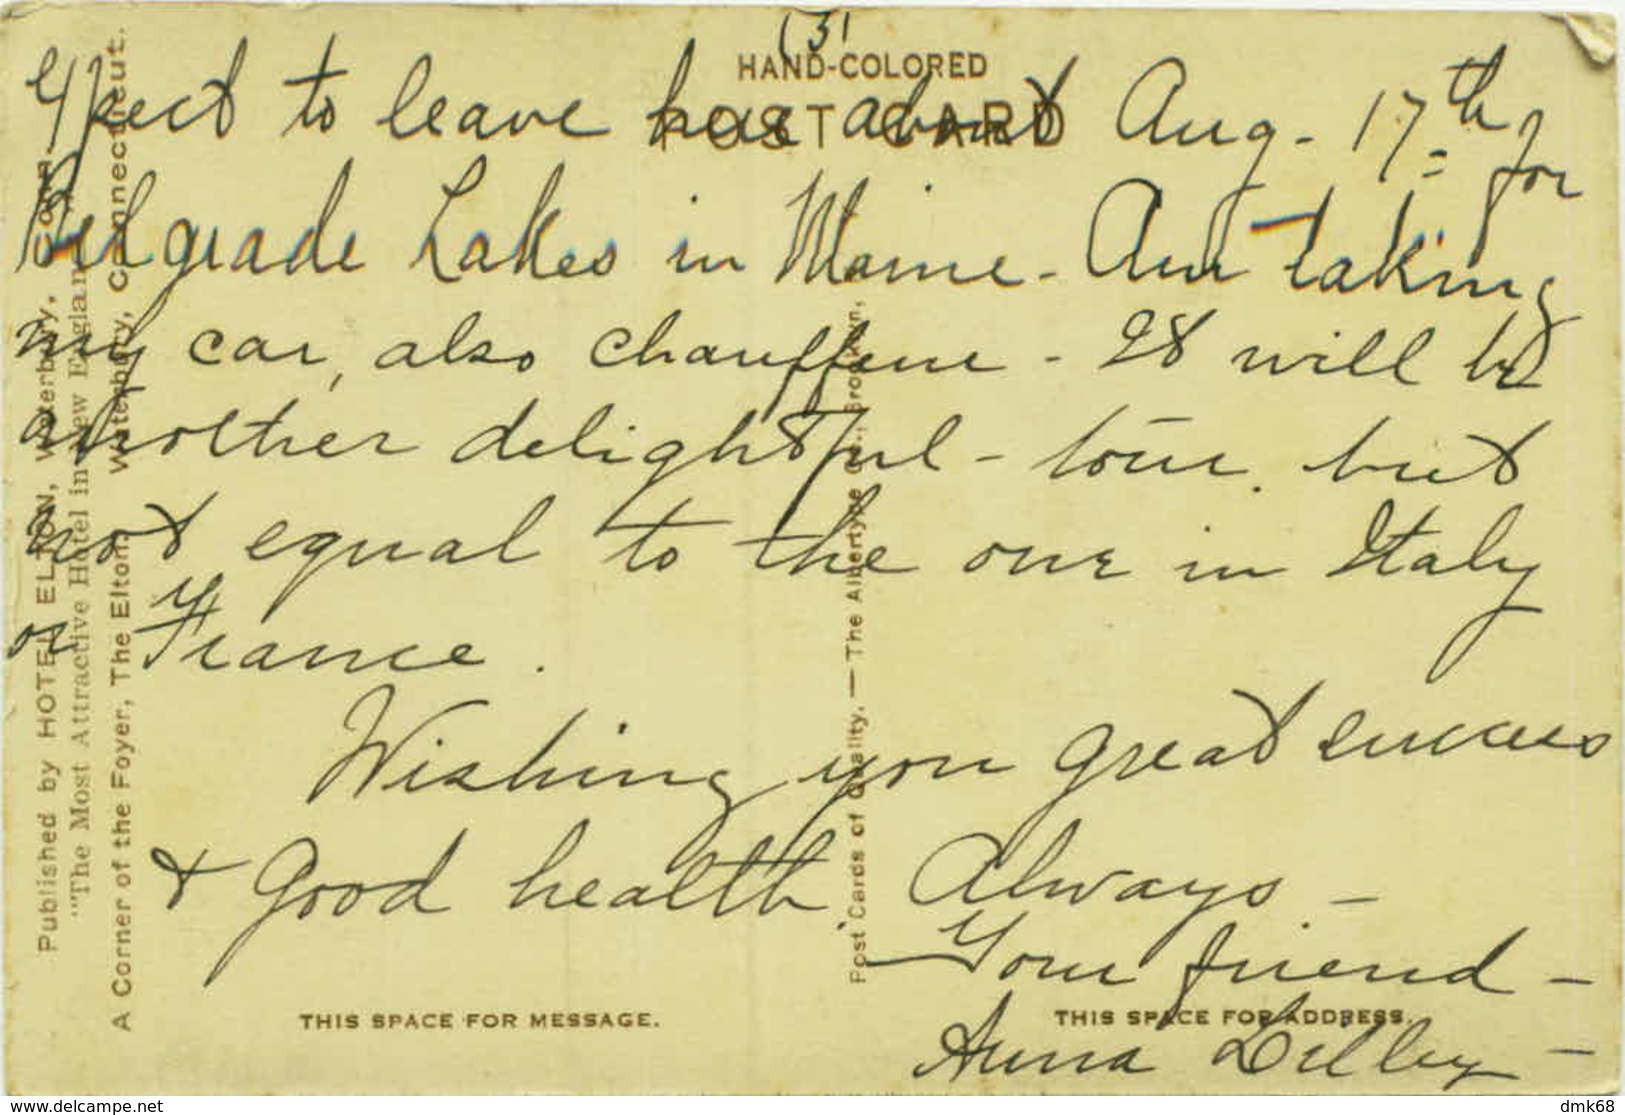 (3)
HAND-COLORED
POST CARD
Expect to leave here about Aug- 17th for
Belgrade Lakes in Maine- Am taking
my car, also chauffeur - It will be
another delightful - tour. but
not equal to the one in Italy
or France.
Wishing you great success
& Good health. Always -
Your friend -
Anna Dilley -
THIS SPACE FOR MESSAGE.
THIS SPACE FOR ADDRESS.
Published by HOTEL ELTON, Waterbury, CONN.
"The Most Attractive Hotel in New England"
A Corner of the Foyer, The Elton, Waterbury, Connecticut.
Post Cards of Quality. — The Albertype Co., Brooklyn,
www.delcampe.net
dmk68